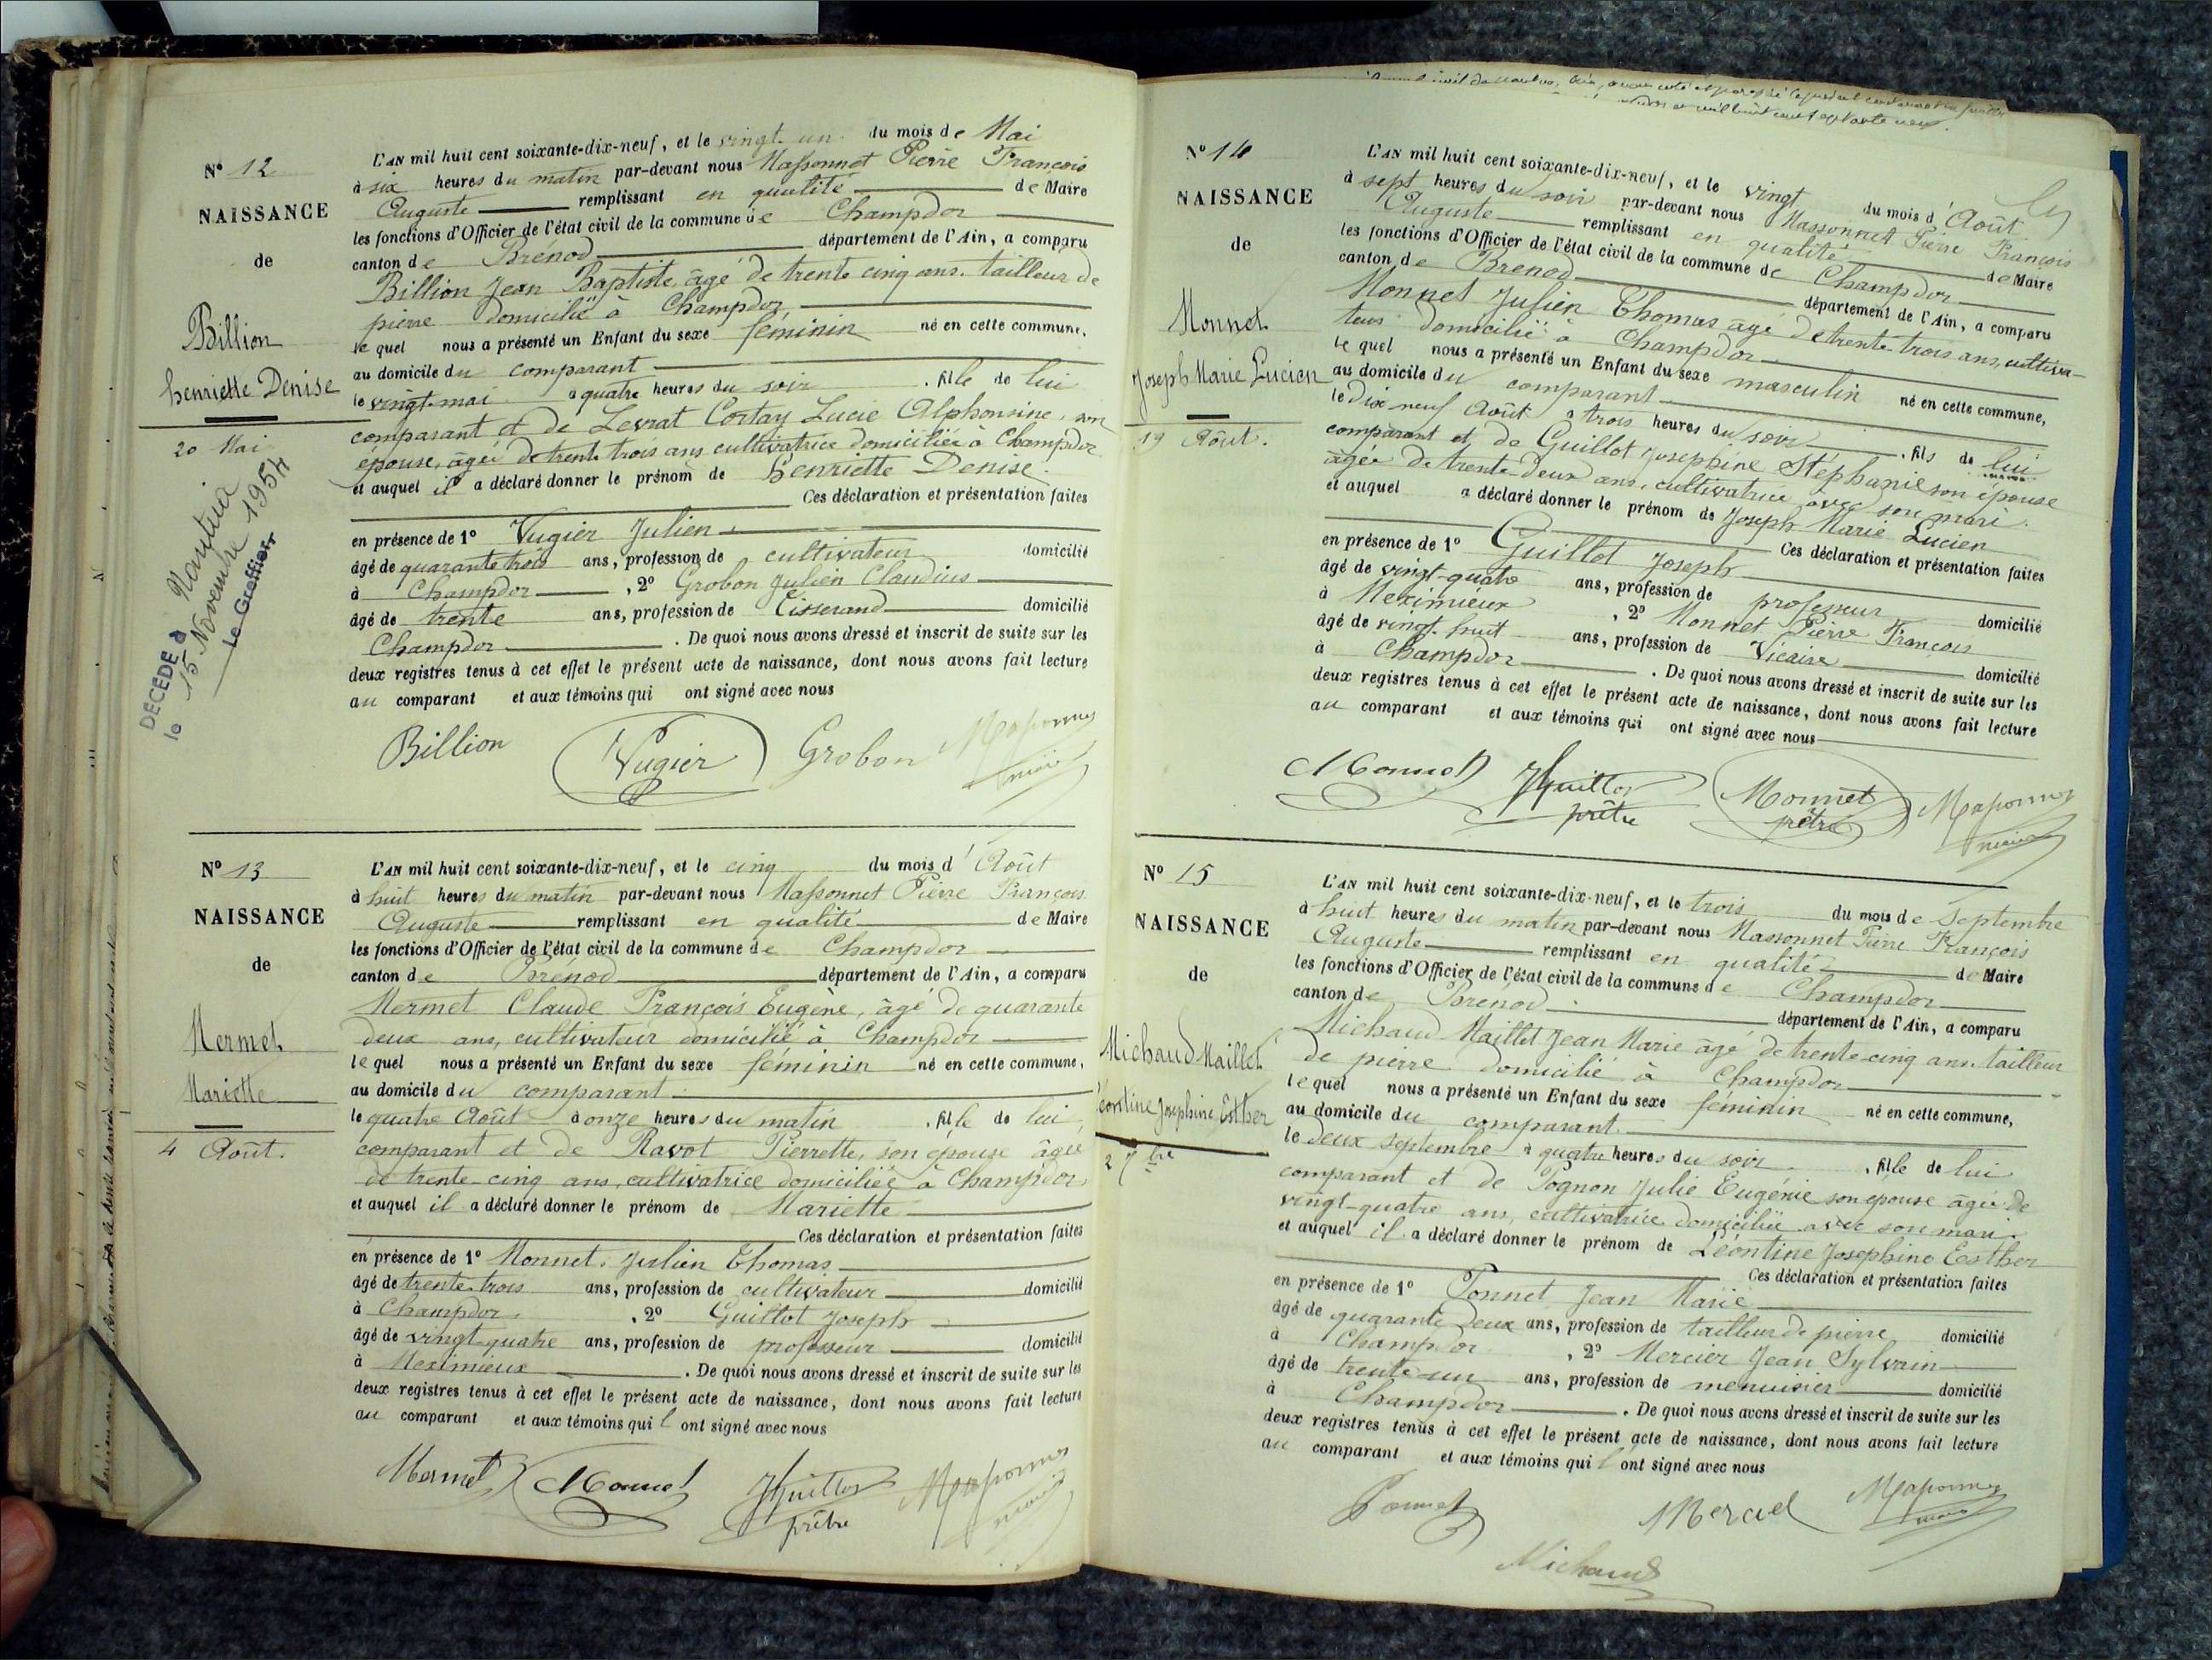 N° 12
NAISSANCE
de
Billion
henriette Denise
20 Mai
DÉCÉDÉ à Nantua
le 15 Novembre 1954
Le Greffier
L'AN mil huit cent soixante-dix-neuf, et le vingt un du mois de Mai
à six heures du matin par-devant nous Massonnet Pierre François
Auguste remplissant en qualité de Maire
les fonctions d'Officier de l'état civil de la commune de Champdor
canton de Brénod département de l'Ain, a comparu
Billion Jean Baptiste, âgé de trente cinq ans, tailleur de
pierre domicilié à Champdor
le quel nous a présenté un Enfant du sexe féminin né en cette commune,
au domicile du comparant
le vingt mai à quatre heures du soir, fille de lui
comparant et de Levrat Cortay Lucie Alphonsine, son
épouse, âgée de trente trois ans cultivatrice domiciliée à Champdor
et auquel il a déclaré donner le prénom de Henriette Denise.
Ces déclaration et présentation faites
en présence de 1° Vugier Julien
âgé de quarante trois ans, profession de cultivateur domicilié
à Champdor, 2° Grobon Julien Claudius
âgé de trente ans, profession de Tisserand domicilié
Champdor. De quoi nous avons dressé et inscrit de suite sur les
deux registres tenus à cet effet le présent acte de naissance, dont nous avons fait lecture
au comparant et aux témoins qui ont signé avec nous
Billion Vugier Grobon Massonnet
maire
N° 13
NAISSANCE
de
Mermet
Mariette
4 Août.
L'AN mil huit cent soixante-dix-neuf, et le cinq du mois d'Août
à huit heures du matin par-devant nous Massonnet Pierre François
Auguste remplissant en qualité de Maire
les fonctions d'Officier de l'état civil de la commune de Champdor
canton de Brénod département de l'Ain, a comparu
Mermet Claude François Eugène, âgé de quarante
deux ans, cultivateur domicilié à Champdor
le quel nous a présenté un Enfant du sexe féminin né en cette commune,
au domicile du comparant
le quatre Août à onze heures du matin, fille de lui
comparant et de Ravot Pierrette, son épouse âgée
de trente-cinq ans, cultivatrice domiciliée à Champdor,
et auquel il a déclaré donner le prénom de Mariette
Ces déclaration et présentation faites
en présence de 1° Monnet Julien Thomas
âgé de trente trois ans, profession de cultivateur domicilié
à Champdor, 2° Guillot Joseph
âgé de vingt-quatre ans, profession de professeur domicilié
à Meximieux. De quoi nous avons dressé et inscrit de suite sur les
deux registres tenus à cet effet le présent acte de naissance, dont nous avons fait lecture
au comparant et aux témoins qui l'ont signé avec nous
Mermet Monnet JGuillot Massonnet
prêtre maire
N° 14
NAISSANCE
de
Monnet
Joseph Marie Lucien
19 Août.
L'AN mil huit cent soixante-dix-neuf, et le vingt du mois d'Août
à sept heures du soir par-devant nous Massonnet Pierre François
Auguste remplissant en qualité de Maire
les fonctions d'Officier de l'état civil de la commune de Champdor
canton de Brenod département de l'Ain, a comparu
Monnet Julien Thomas âgé de trente trois ans, cultiva-
teur domicilié à Champdor
le quel nous a présenté un Enfant du sexe masculin né en cette commune,
au domicile du comparant
le dix neuf Août à trois heures du soir, fils de lui
comparant et de Guillot Josephine Stéphanie son épouse
âgée de trente-deux ans, cultivatrice avec son mari.
et auquel a déclaré donner le prénom de Joseph Marie Lucien
Ces déclaration et présentation faites
en présence de 1° Guillot Joseph
âgé de vingt-quatre ans, profession de professeur domicilié
à Meximieux, 2° Monnet Pierre François
âgé de vingt-huit ans, profession de Vicaire domicilié
à Champdor. De quoi nous avons dressé et inscrit de suite sur les
deux registres tenus à cet effet le présent acte de naissance, dont nous avons fait lecture
au comparant et aux témoins qui ont signé avec nous
Monnet JGuillot Monnet Massonnet
prêtre prêtre maire
N° 15
NAISSANCE
de
Michaud Maillet
Léontine Josephine Esther
2 7bre
L'AN mil huit cent soixante-dix-neuf, et le trois du mois de Septembre
à huit heures du matin par-devant nous Massonnet Pierre François
Auguste remplissant en qualité de Maire
les fonctions d'Officier de l'état civil de la commune de Champdor
canton de Brenod département de l'Ain, a comparu
Michaud Maillet Jean Marie âgé de trente-cinq ans tailleur
de pierre domicilié à Champdor
le quel nous a présenté un Enfant du sexe féminin né en cette commune,
au domicile du comparant
le deux septembre à quatre heures du soir, fille de lui
comparant et de Pognon Julie Eugénie son épouse âgée de
vingt-quatre ans, cultivatrice domiciliée avec son mari.
et auquel il a déclaré donner le prénom de Léontine Josephine Eesther
Ces déclaration et présentation faites
en présence de 1° Ponnet Jean Marie
âgé de quarante deux ans, profession de tailleur de pierre domicilié
à Champdor, 2° Mercier Jean Sylvain
âgé de trente-un ans, profession de menuisier domicilié
à Champdor. De quoi nous avons dressé et inscrit de suite sur les
deux registres tenus à cet effet le présent acte de naissance, dont nous avons fait lecture
au comparant et aux témoins qui l'ont signé avec nous
Ponnet Mercier Massonnet
maire
Michaud